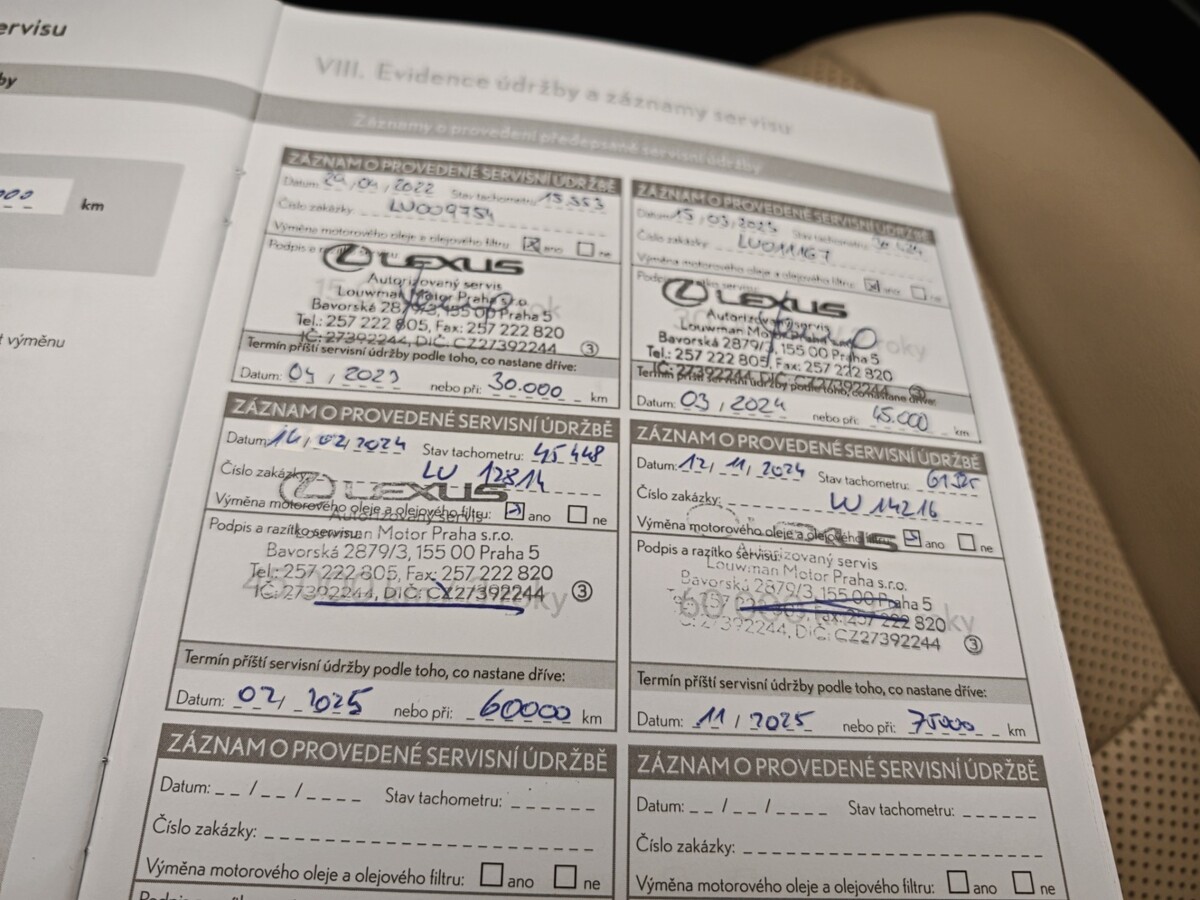 ervisu
by
km
t výměnu
VIII. Evidence údržby a záznamy servisu
Záznamy o provedení předepsané servisní údržby
ZÁZNAM O PROVEDENÉ SERVISNÍ ÚDRŽBĚ
Datum: 29/04/2022 Stav tachometru: 15.353
Číslo zakázky: LU009754
Výměna motorového oleje a olejového filtru: ano ne
Podpis a
LEXUS
Autorizovaný servis
Louwman Motor Praha s.r.o.
Bavorská 2879/3, 155 00 Praha 5
Tel.: 257 222 805, Fax: 257 222 820
IČ: 27392244, DIČ: CZ27392244 3
Termín příští servisní údržby podle toho, co nastane dříve:
Datum: 04/2023 nebo při: 30.000 km
ZÁZNAM O PROVEDENÉ SERVISNÍ ÚDRŽBĚ
Datum: 15/03/2023 Stav tachometru:
Číslo zakázky: LU011167
Výměna motorového oleje a olejového filtru: ano ne
LEXUS
Autorizovaný servis
Louwman Motor Praha
Bavorská 2879/3, 155 00 Praha 5
Tel.: 257 222 805, Fax: 257 222 820
IČ: 27392244, DIČ: CZ27392244 3
Termín příští servisní údržby podle toho, co nastane dříve:
Datum: 03/2024 nebo při: 45.000 km
ZÁZNAM O PROVEDENÉ SERVISNÍ ÚDRŽBĚ
Datum: 14/02/2024 Stav tachometru: 45448
Číslo zakázky: LU 12814
LEXUS
Výměna motorového oleje a olejového filtru: ano ne
Autorizovaný servis
Podpis a razítko servisu:
Louwman Motor Praha s.r.o.
Bavorská 2879/3, 155 00 Praha 5
Tel.: 257 222 805, Fax: 257 222 820
IČ: 27392244, DIČ: CZ27392244 3
Termín příští servisní údržby podle toho, co nastane dříve:
Datum: 02/2025 nebo při: 60000 km
ZÁZNAM O PROVEDENÉ SERVISNÍ ÚDRŽBĚ
Datum: 12/11/2024 Stav tachometru:
Číslo zakázky: LU 14216
Výměna motorového oleje a olejového filtru: ano ne
Podpis a razítko servisu:
Autorizovaný servis
Louwman Motor Praha s.r.o.
Bavorská 2879/3, 155 00 Praha 5
Fax: 257 222 820
IČ: 27392244, DIČ: CZ27392244 3
Termín příští servisní údržby podle toho, co nastane dříve:
Datum: 11/2025 nebo při: 75000 km
ZÁZNAM O PROVEDENÉ SERVISNÍ ÚDRŽBĚ
Datum: __/__/____ Stav tachometru: ______
Číslo zakázky:
Výměna motorového oleje a olejového filtru: ano ne
ZÁZNAM O PROVEDENÉ SERVISNÍ ÚDRŽBĚ
Datum: __/__/____ Stav tachometru: ______
Číslo zakázky:
Výměna motorového oleje a olejového filtru: ano ne